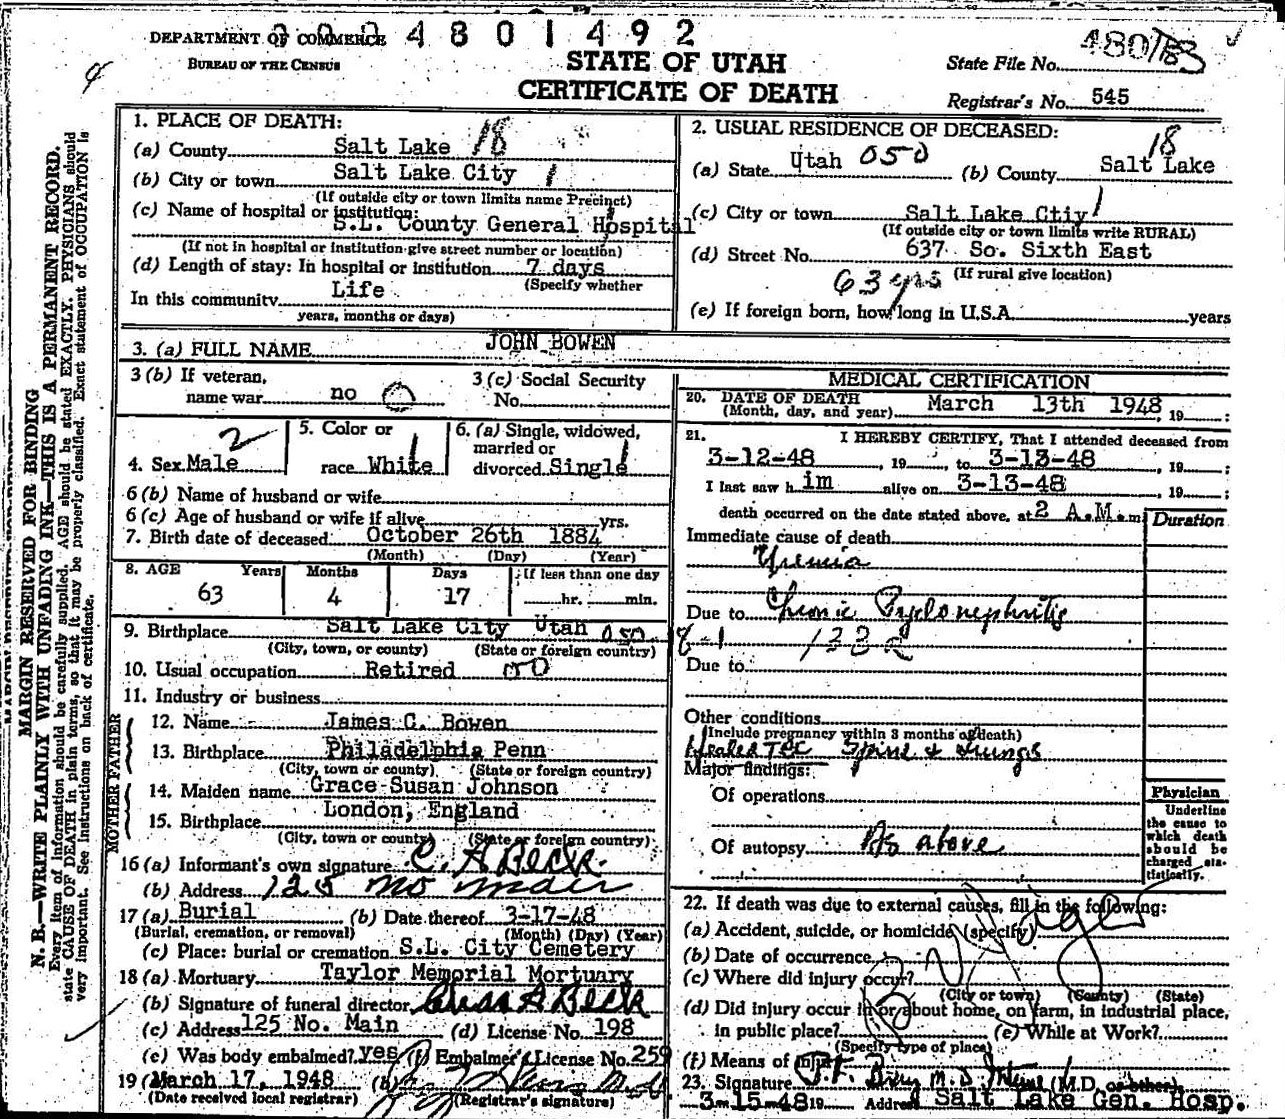 DEPARTMENT OF COMMERCE
BUREAU OF THE CENSUS
4 8 0 1 4 9 2
STATE OF UTAH
CERTIFICATE OF DEATH
State File No.
Registrar's No. 545
MARGIN RESERVED FOR BINDING
N. B.—WRITE PLAINLY WITH UNFADING INK—THIS IS A PERMANENT RECORD.
Every item of information should be carefully supplied. AGE should be stated EXACTLY. PHYSICIANS should
state CAUSE OF DEATH in plain terms, so that it may be properly classified. Exact statement of OCCUPATION is
very important. See instructions on back of certificate.
1. PLACE OF DEATH:
(a) County Salt Lake 18
(b) City or town Salt Lake City 1
(If outside city or town limits name Precinct)
(c) Name of hospital or institution:
S.L. County General Hospital
(If not in hospital or institution give street number or location)
(d) Length of stay: In hospital or institution 7 days
(Specify whether
In this community Life
years, months or days)
2. USUAL RESIDENCE OF DECEASED:
18
(a) State Utah 050 (b) County Salt Lake
(c) City or town Salt Lake Ctiy 1
(If outside city or town limits write RURAL)
(d) Street No. 637 So. Sixth East
63 yrs (If rural give location)
(e) If foreign born, how long in U.S.A. years
3. (a) FULL NAME JOHN BOWEN
3 (b) If veteran,
name war no
3 (c) Social Security
No.
4. Sex Male 2
5. Color or
race White 1
6. (a) Single, widowed,
married or
divorced Single 1
6 (b) Name of husband or wife
6 (c) Age of husband or wife if alive yrs.
7. Birth date of deceased October 26th 1884
(Month) (Day) (Year)
8. AGE Years Months Days If less than one day
63 4 17 hr. min.
9. Birthplace Salt Lake City Utah 050 18-1
(City, town, or county) (State or foreign country)
10. Usual occupation Retired
11. Industry or business
FATHER
12. Name James C. Bowen
13. Birthplace Philadelphia Penn
(City, town or county) (State or foreign country)
MOTHER
14. Maiden name Grace Susan Johnson
15. Birthplace London, England
(City, town or county) (State or foreign country)
16 (a) Informant's own signature C. A Beck.
(b) Address 125 No main
17 (a) Burial (b) Date thereof 3-17-48
(Burial, cremation, or removal) (Month) (Day) (Year)
(c) Place: burial or cremation S.L. City Cemetery
18 (a) Mortuary Taylor Memorial Mortuary
(b) Signature of funeral director A Beck
(c) Address 125 No. Main (d) License No. 198
(e) Was body embalmed? yes (f) Embalmer's License No. 259
19 (a) March 17, 1948 (b)
(Date received local registrar) (Registrar's signature)
MEDICAL CERTIFICATION
20. DATE OF DEATH
(Month, day, and year) March 13th 1948, 19 :
21. I HEREBY CERTIFY, That I attended deceased from
3-12-48, 19 , to 3-13-48, 19 ;
I last saw h im alive on 3-13-48, 19 ;
death occurred on the date stated above, at 2 A.M. m.
Duration
Immediate cause of death
Uremia
Due to Chronic Pyelonephritis
Due to
Other conditions
(Include pregnancy within 3 months of death)
Healed TBC Spine & Lungs
Major findings:
Of operations
Of autopsy As above
Physician
Underline
the cause to
which death
should be
charged sta-
tistically.
22. If death was due to external causes, fill in the following:
(a) Accident, suicide, or homicide (specify)
(b) Date of occurrence
(c) Where did injury occur?
(City or town) (County) (State)
(d) Did injury occur in or about home, on farm, in industrial place,
in public place? (e) While at Work?
(Specify type of place)
(f) Means of injury
23. Signature M.D. (M.D. or other)
3-15-48 19 Address Salt Lake Gen. Hosp.